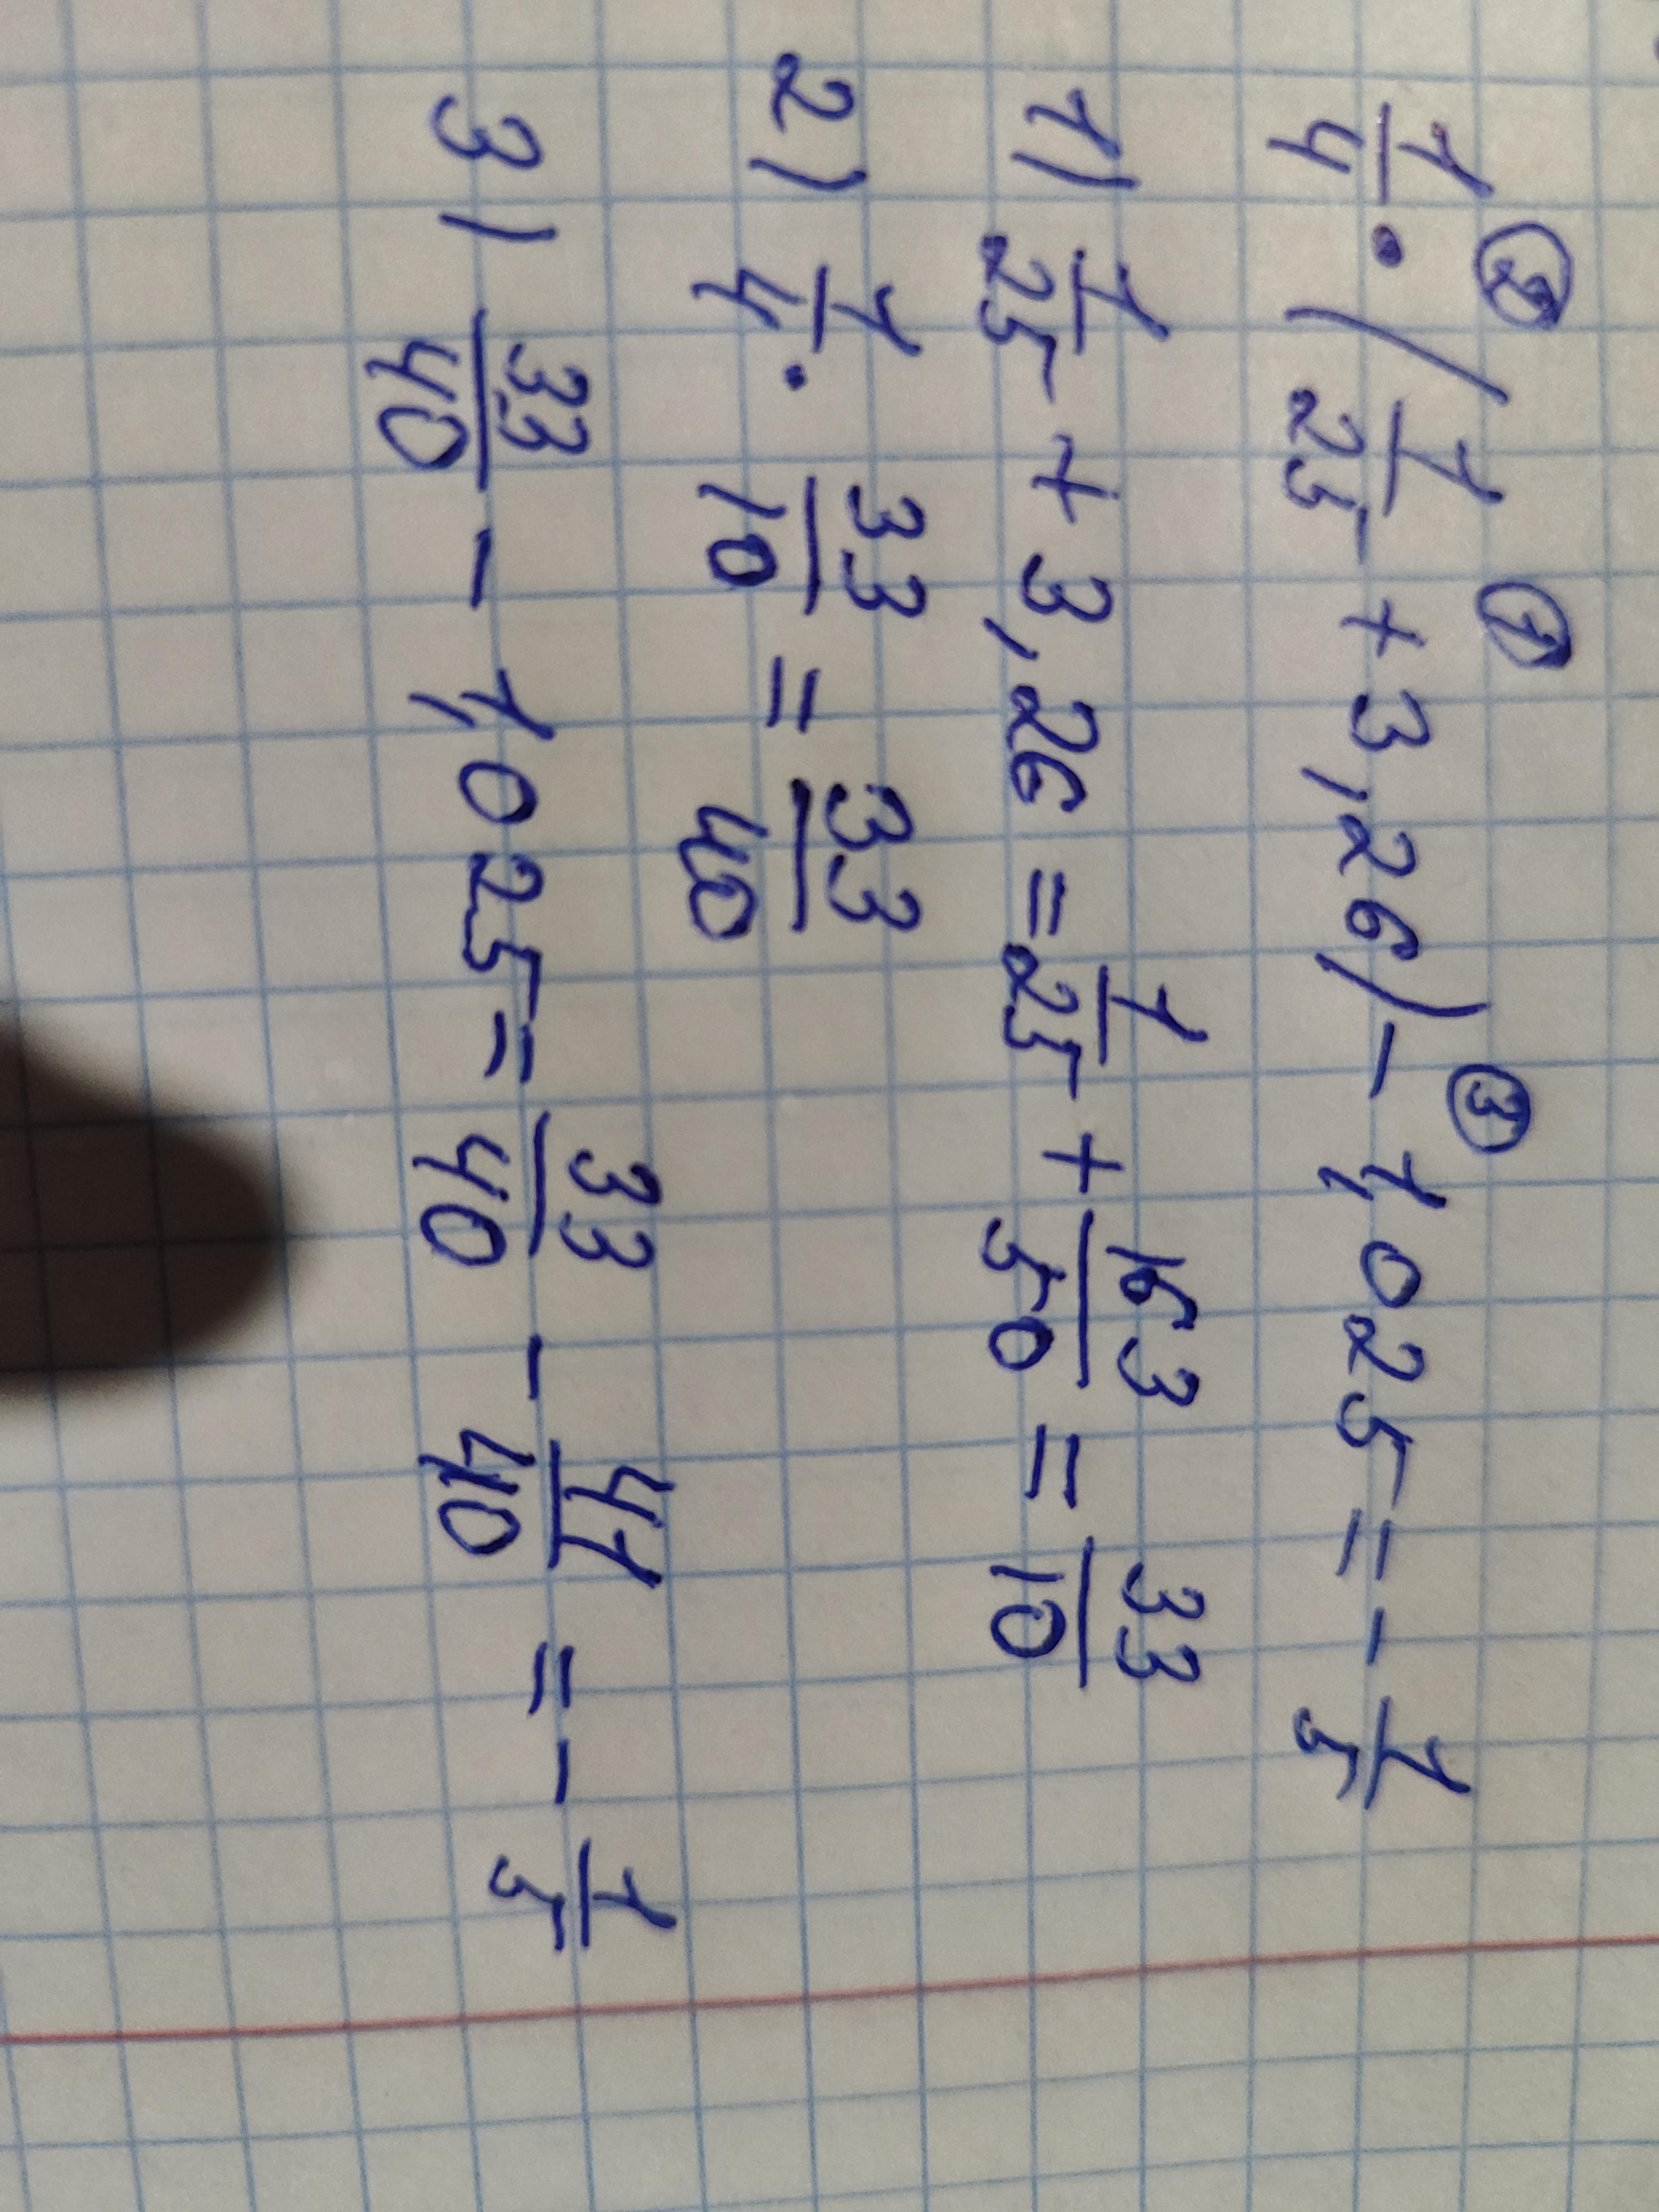 ② ① ③
1/4 · (1/25 + 3,26) - 1,025 = - 1/5
1) 1/25 + 3,26 = 1/25 + 163/50 = 33/10
2) 1/4 · 33/10 = 33/40
3) 33/40 - 1,025 = 33/40 - 41/40 = - 1/5